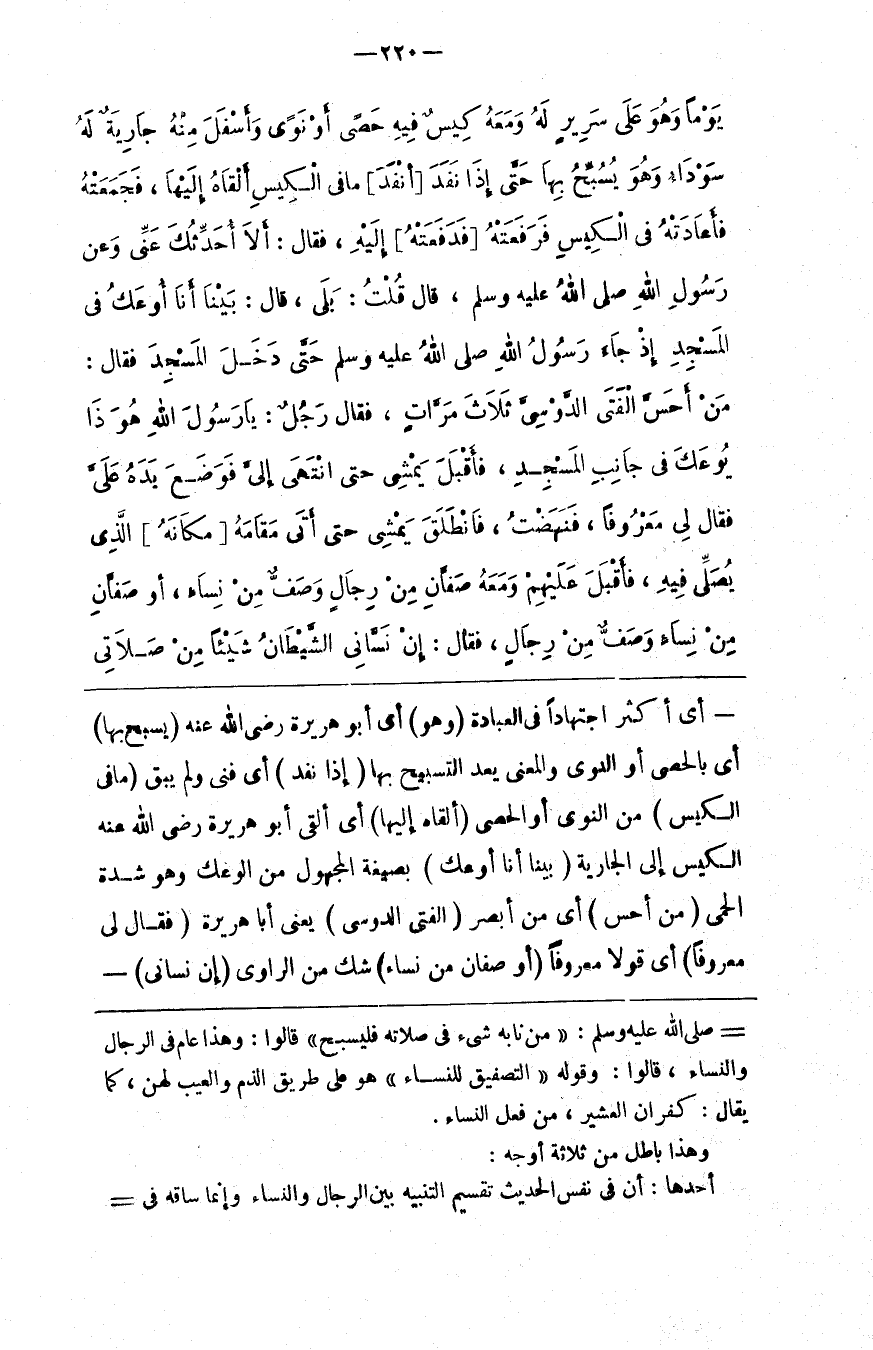 —٢٢٠—
يَوْماً وَهُوَ عَلَى سَرِيرٍ لَهُ وَمَعَهُ كِيسٌ فِيهِ حَصًى أَوْ نَوًى وَأَسْفَلَ مِنْهُ جَارِيَةٌ لَهُ
سَوْدَاءُ وَهُوَ يُسَبِّحُ بِهَا حَتَّى إِذَا نَفَدَ [أَنْفَدَ] مافى الْكِيسِ أَلْقَاهُ إِلَيْهَا ، فَجَمَعَتْهُ
فأَعَادَتْهُ فى الْكِيسِ فَرَفَعَتْهُ [فَدَفَعَتْهُ] إِلَيْهِ ، فقال : أَلاَ أُحَدِّثُكَ عَنِّى وَعن
رَسُولِ اللهِ صلى اللهُ عليه وسلم ، قال قُلْتُ : بَلَى ، قال : بَيْنَا أَنَا أُوعَكُ فى
المَسْجِدِ إِذْ جَاءَ رَسُولُ اللهِ صلى اللهُ عليه وسلم حَتَّى دَخَلَ المَسْجِدَ فقال :
مَنْ أَحَسَّ الْفَتَى الدَّوْسِىَّ ثَلَاثَ مَرَّاتٍ ، فقال رَجُلٌ : يارَسُولَ اللهِ هُوَ ذَا
يُوعَكُ فى جَانِبِ المَسْجِدِ ، فأَقْبَلَ يَمْشِى حتى انْتَهَى إِلىَّ فَوَضَعَ يَدَهُ عَلَىَّ
فقال لِى مَعْرُوفاً ، فَنَهَضْتُ ، فَانْطَلَقَ يَمْشِى حتى أَتَى مَقَامَهُ [ مكَانَهُ ] الَّذِى
يُصَلِّى فِيهِ ، فأَقْبَلَ عَلَيْهِمْ وَمَعَهُ صَفَّانِ مِنْ رِجَالٍ وَصَفٌّ مِنْ نِسَاءِ ، أو صَفَّانِ
مِنْ نِسَاءِ وَصَفٌّ مِنْ رِجَالٍ ، فقال : إِنْ نَسَّانِى الشَّيْطَانُ شَيْئاً مِنْ صَلَاتِى
— أى أكثر اجتهاداً فى العبادة (وهو) أى أبو هريرة رضى الله عنه (يسبح بها)
أى بالحصى أو النوى والمعنى يعد التسبيح بها ( إذا نفد ) أى فنى ولم يبق (مافى
الكيس ) من النوى أو الحصى (ألقاه إليها) أى ألقى أبو هريرة رضى الله عنه
الكيس إلى الجارية ( بينا أنا أوعك ) بصيغة المجهول من الوعك وهو شدة
الحمى ( من أحس ) أى من أبصر ( الفتى الدوسى ) يعنى أبا هريرة ( فقال لى
معروفاً) أى قولا معروفاً (أو صفان من نساء) شك من الراوى (إن نسانى) —
= صلى الله عليه وسلم : « من نابه شىء فى صلاته فليسبح» قالوا : وهذا عام فى الرجال
والنساء ، قالوا : وقوله « التصفيق للنساء » هو على طريق الذم والعيب لهن ، كما
يقال : كفران العشير ، من فعل النساء .
وهذا باطل من ثلاثة أوجه :
أحدها : أن فى نفس الحديث تقسيم التنبيه بين الرجال والنساء وإنما ساقه فى =